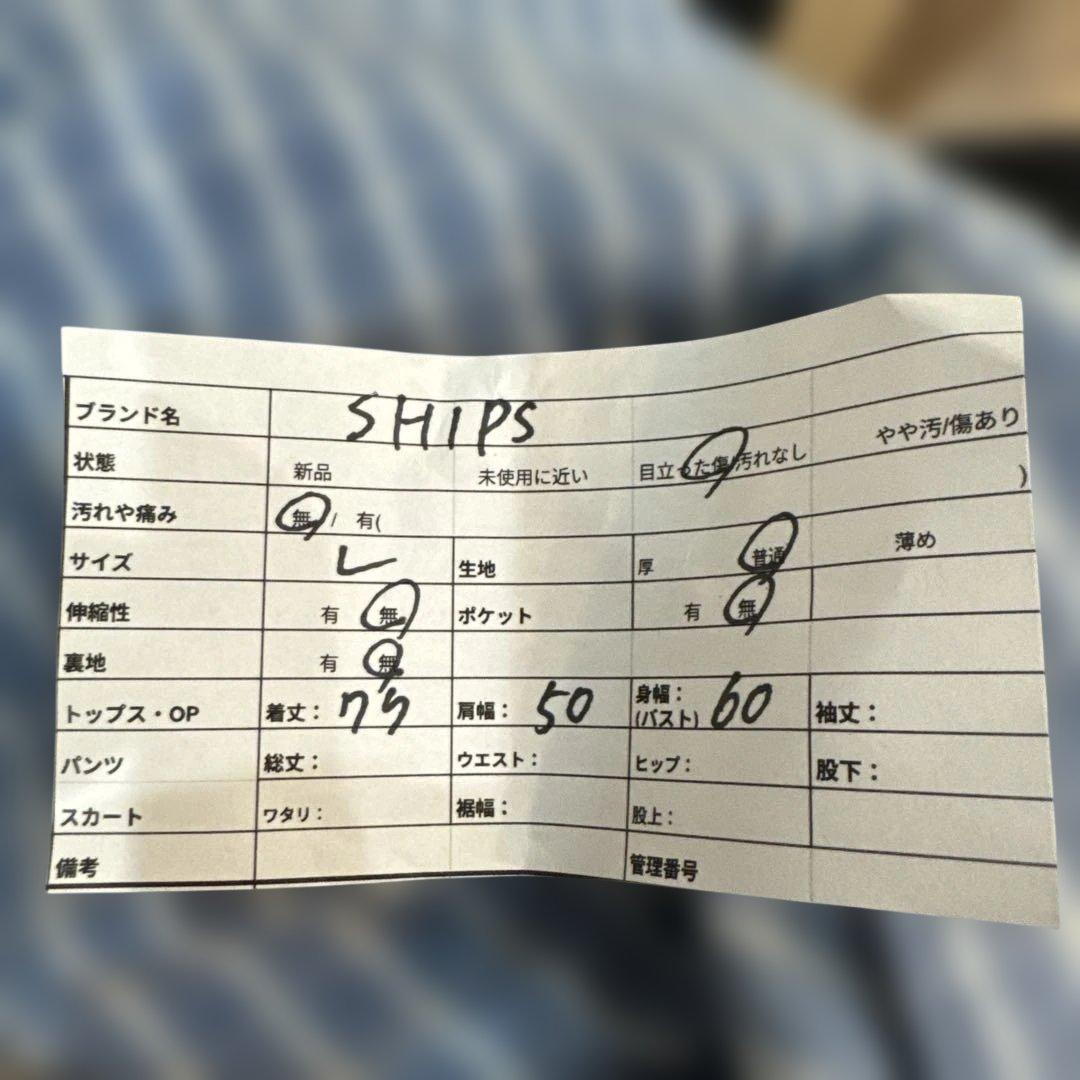 ブランド名 SHIPS
状態 新品 未使用に近い 目立った傷/汚れなし やや汚/傷あり
汚れや痛み 無 / 有( )
サイズ L 生地 厚 普通 薄め
伸縮性 有 無 ポケット 有 無
裏地 有 無
トップス・OP 着丈： 肩幅： 50 身幅：(バスト) 60 袖丈：
パンツ 総丈： ウエスト： ヒップ： 股下：
スカート ワタリ： 裾幅： 股上：
備考 管理番号